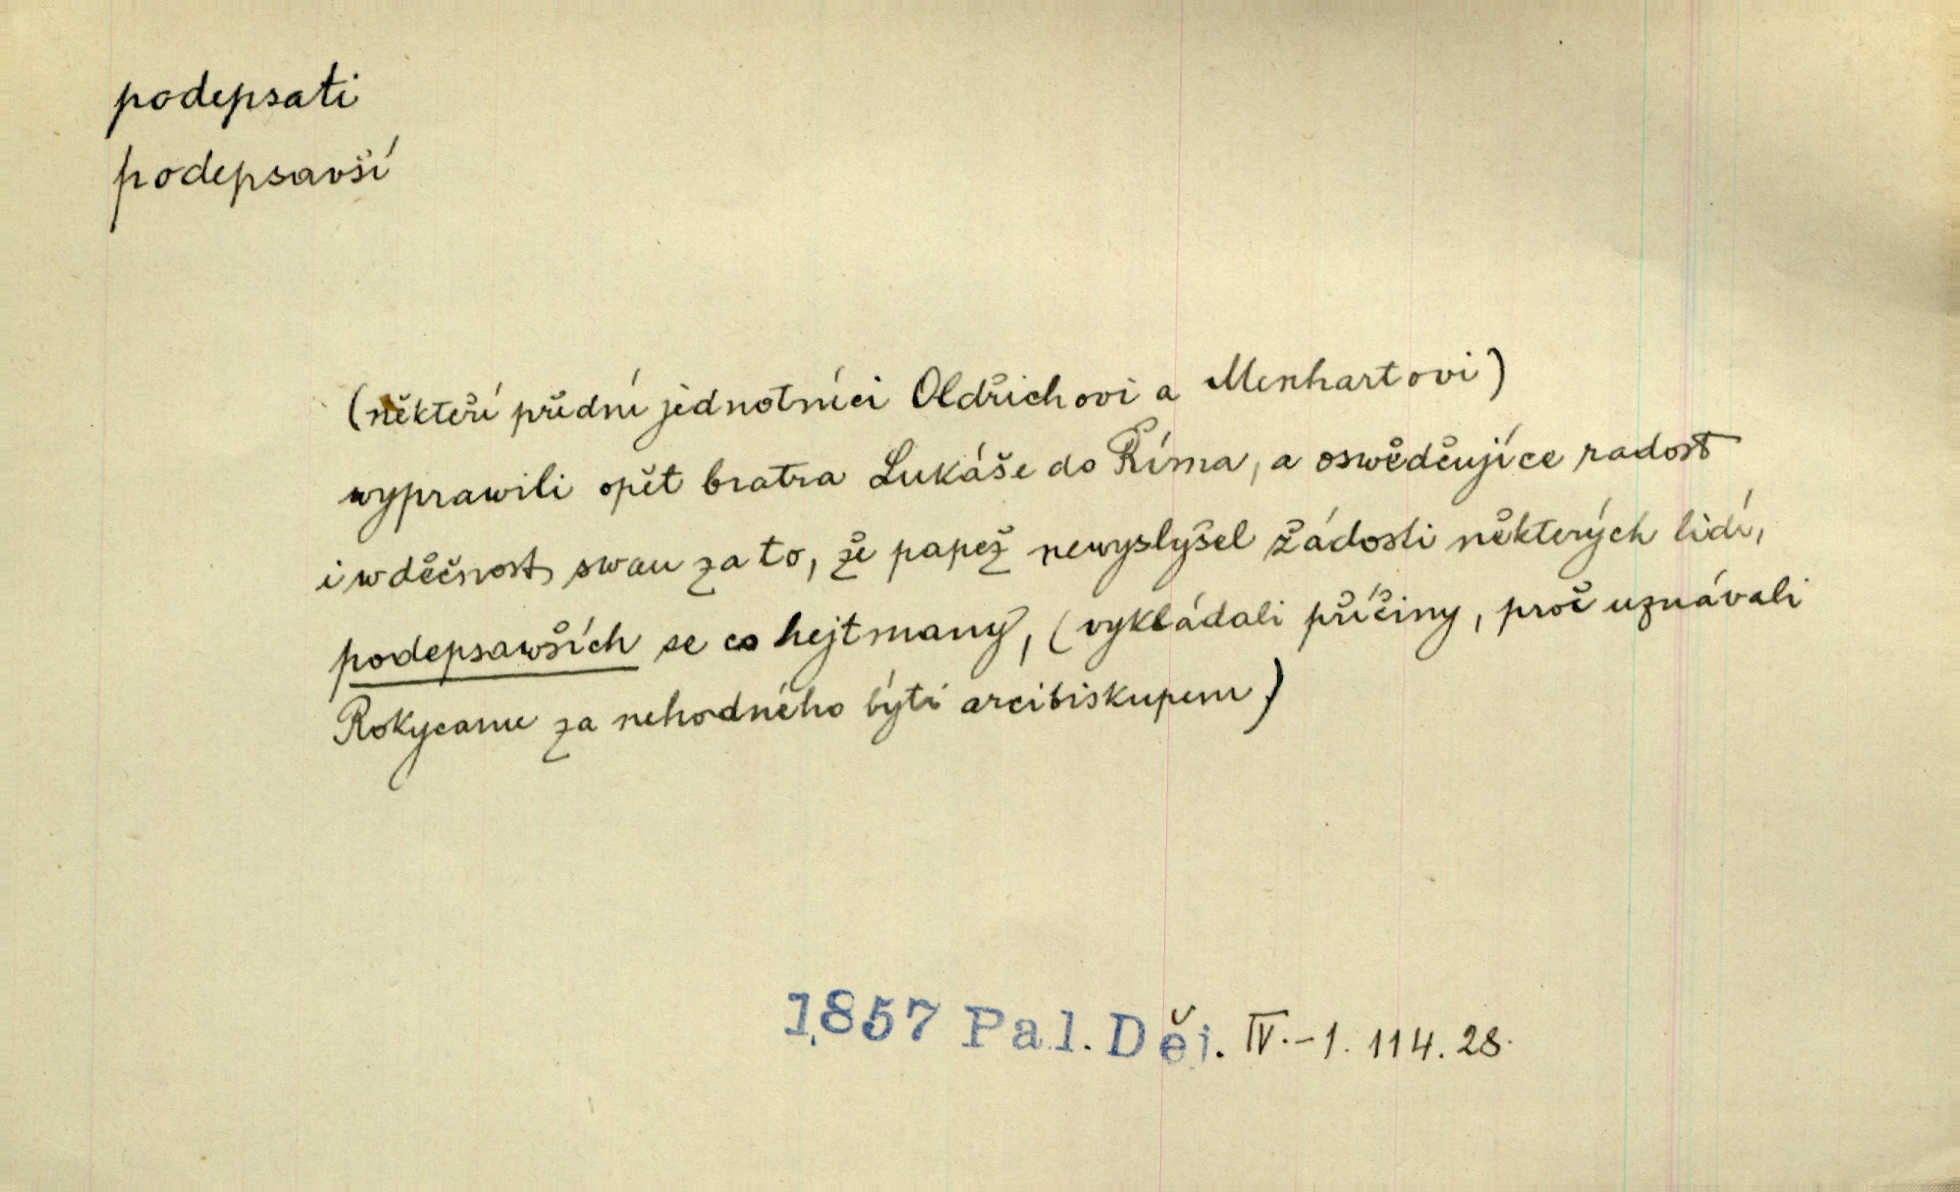 podepsati
podepsavší
(někteří přední jednotníci Oldřichovi a Menhartovi)
wyprawili opět bratra Lukáše do Říma, a oswědčujíce radost
i wděčnost swau za to, že papež newyslyšel žádosti některých lidí,
podepsawších se co hejtmany, (vykládali příčiny, proč uznávali
Rokycanu za nehodného býti arcibiskupem)
1857 Pal. Děj. IV.-1. 114. 28.